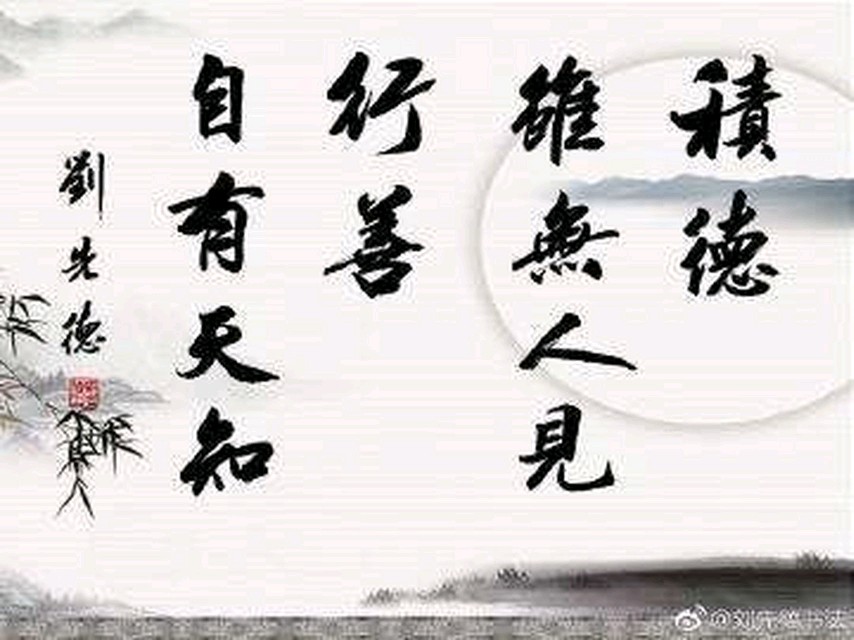 積德
雖無人見
行善
自有天知
劉先德
@刘先德书法